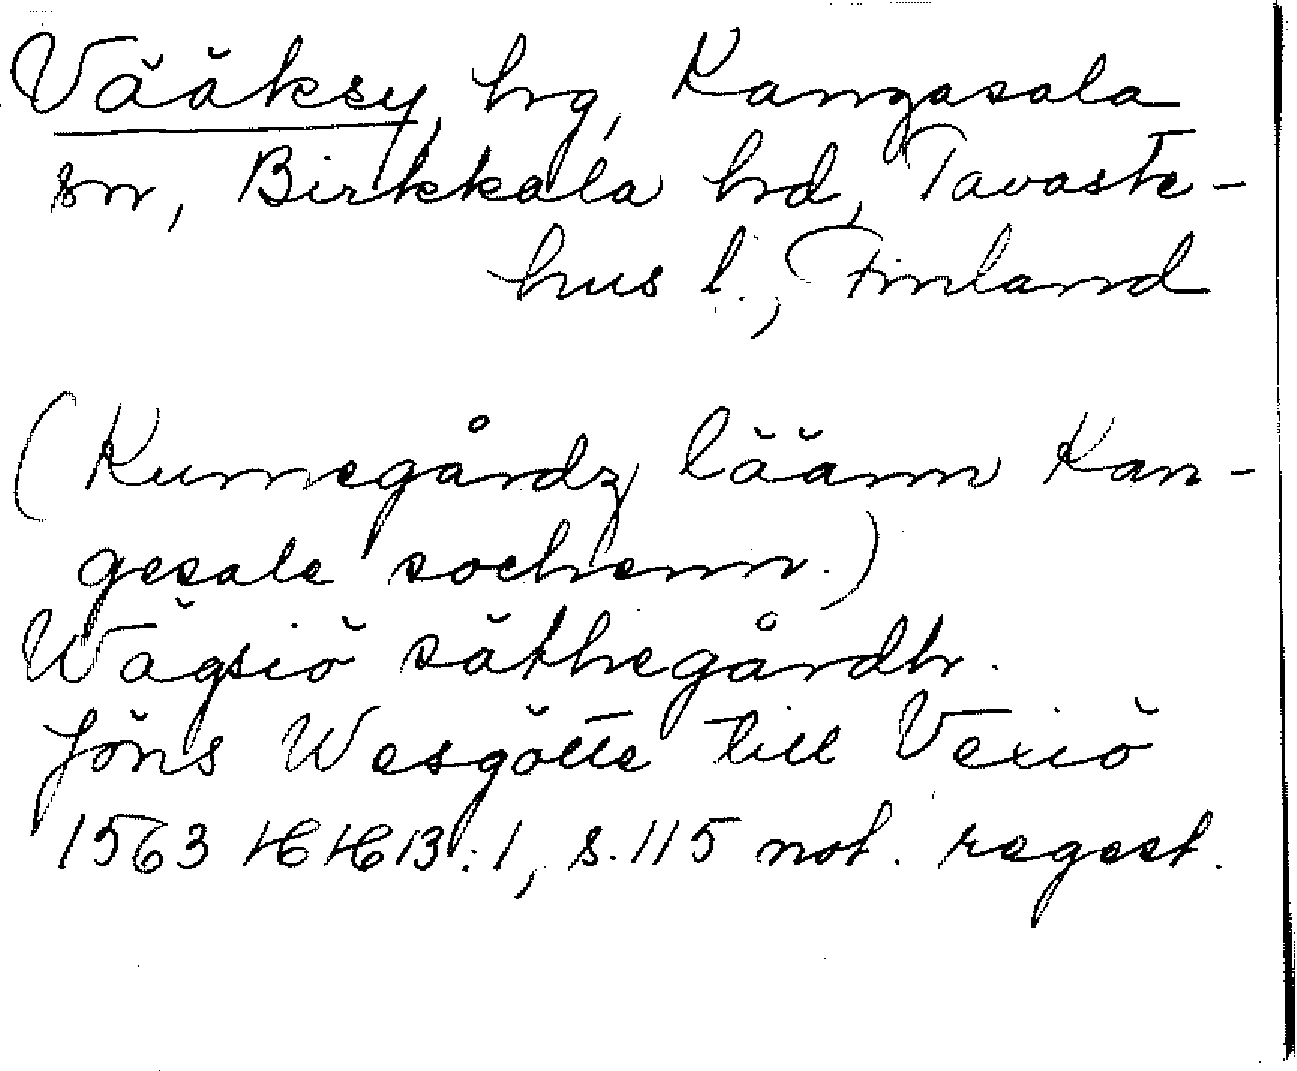 Vääksy, hrg, Kangasala
sn, Birkkala hrd, Tavaste-
hus l., Finland
(Kumegårdz läänn Kan-
gesale sochenn.)
Wägsiö säthegårdh.
Jöns Wesgötte till Vexiö
1563 HHB:1, s. 115 not. regest.